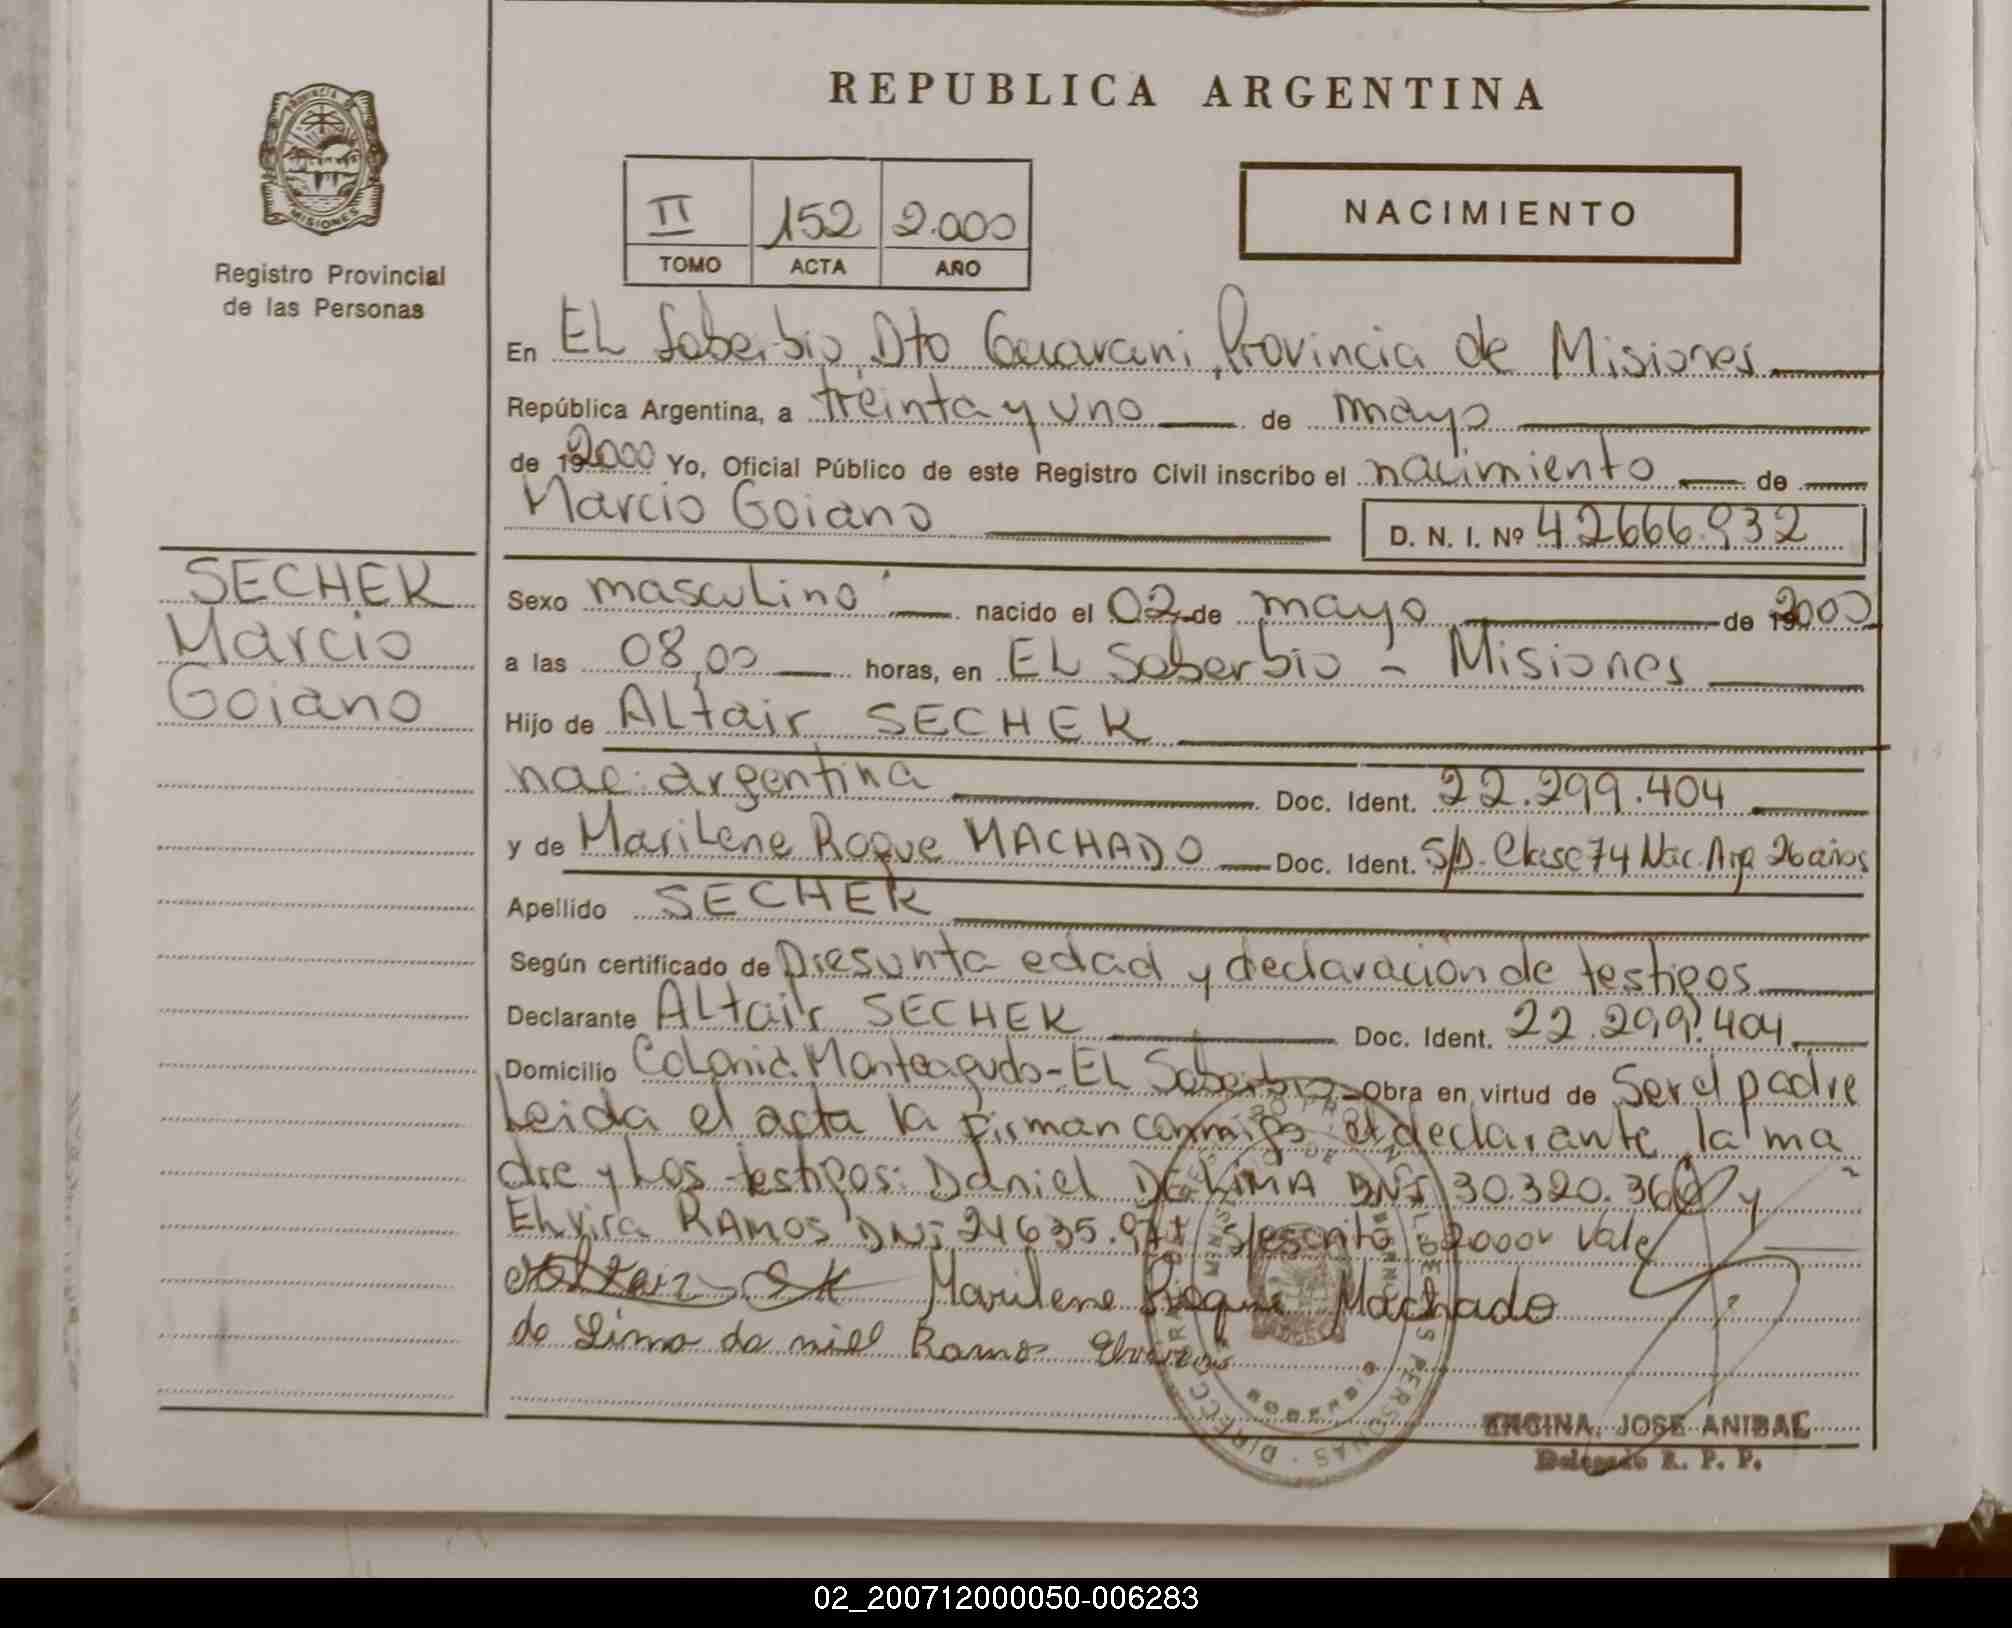 REPUBLICA ARGENTINA
PROVINCIA DE
MISIONES
Registro Provincial
de las Personas
II 152 2.000
TOMO ACTA AÑO
NACIMIENTO
En EL Soberbio, Dto Guarani, Provincia de Misiones
República Argentina, a treinta y uno de mayo
de 2000 Yo, Oficial Público de este Registro Civil inscribo el nacimiento de
Marcio Goiano
D. N. I. Nº 42666.932
SECHEK
Marcio
Goiano
Sexo masculino nacido el 02 de mayo de 2000
a las 08,00 horas, en EL Soberbio - Misiones
Hijo de ALtair SECHEK
nac. argentina Doc. Ident. 22.299.404
y de MariLene Roque MACHADO Doc. Ident. S/D. Clase 74 Nac. Arg 26 años
Apellido SECHEK
Según certificado de Presunta edad y declaración de testigos
Declarante ALtair SECHEK Doc. Ident. 22.299.404
Domicilio CoLonia Monteagudo - EL Soberbio - Obra en virtud de Ser el padre
Leida el acta la firman conmigo el declarante, la ma
dre y Los testigos: Daniel DE LIMA DNI 30.320.36 y
ELvira RAMOS DNI s/escrito 2000 Vale
Marilene Roque Machado
de Lima da niel Ramos
DIRECC PERSONAS
SOBERBIO
ENCINA, JOSE ANIBAL
Delegado R. P. P.
02_200712000050-006283